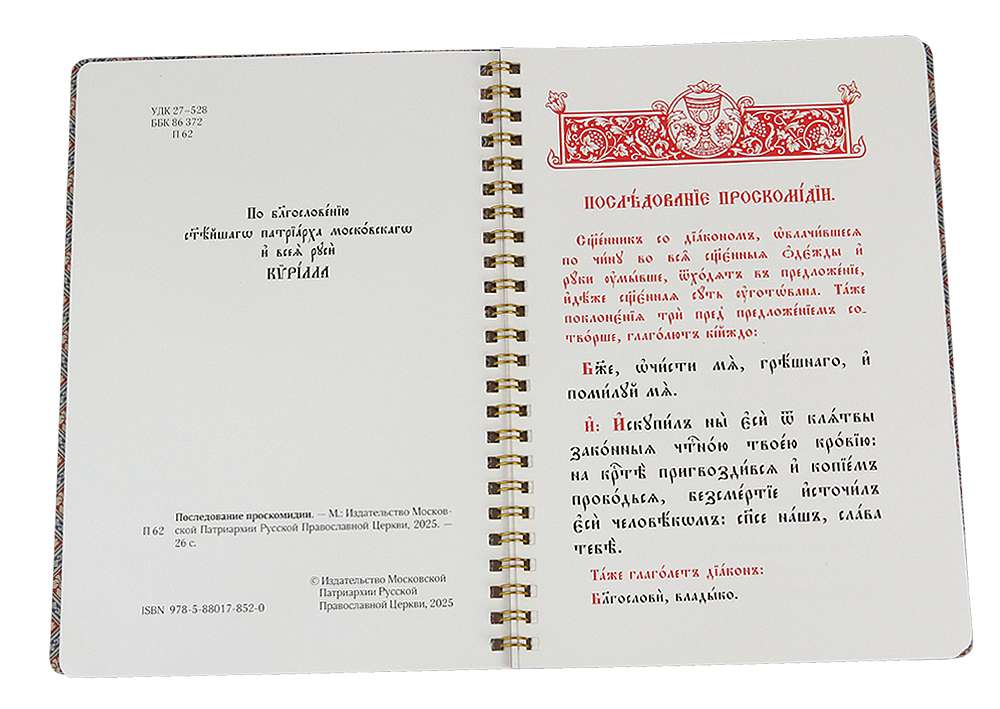 УДК 27–528
ББК 86 372
П 62
По бл҃гослове́нїю
ст҃ѣ́йшагѡ патрїа́рха моско́вскагѡ
и҆ всеѧ̀ рꙋсѝ
КѴРІ́ЛЛА
Последование проскомидии. — М.: Издательство Москов-
П 62 ской Патриархии Русской Православной Церкви, 2025. —
26 с.
© Издательство Московской
Патриархии Русской
Православной Церкви, 2025
ISBN 978-5-88017-852-0
ПОСЛѢ́ДОВАНЇЕ ПРОСКОМІ́ДЇИ.
Сщ҃е́нникъ со дїа́кономъ, ѡ҆блачи́вшесѧ
по чи́нꙋ во всѧ̑ сщ҃є́нныѧ ѻ҆дє́жды и҆
рꙋ́ки ᲂу҆мы́вше, ѿхо́дѧтъ въ предложе́нїе,
и҆дѣ́же сщ҃є́ннаѧ сꙋ́ть ᲂу҆гото́вана. Та́же
поклонє́нїѧ трѝ пред̾ предложе́нїемъ со-
тво́рше, глаго́лютъ кі́йждо:
Бж҃е, ѡ҆чи́сти мѧ̀, грѣ́шнаго, и҆
поми́лꙋй мѧ̀.
И҆: И҆скꙋпи́лъ ны̀ є҆сѝ ѿ клѧ́твы
зако́нныѧ чтⷭ҇но́ю твое́ю кро́вїю:
на крⷭ҇тѣ̀ пригвозди́всѧ и҆ копїе́мъ
пробо́дьсѧ, безсме́ртїе и҆сточи́лъ
є҆сѝ человѣ́кѡмъ: сп҃се на́шъ, сла́ва
тебѣ̀.
Та́же глаго́летъ дїа́конъ:
Бл҃гословѝ, влады́ко.